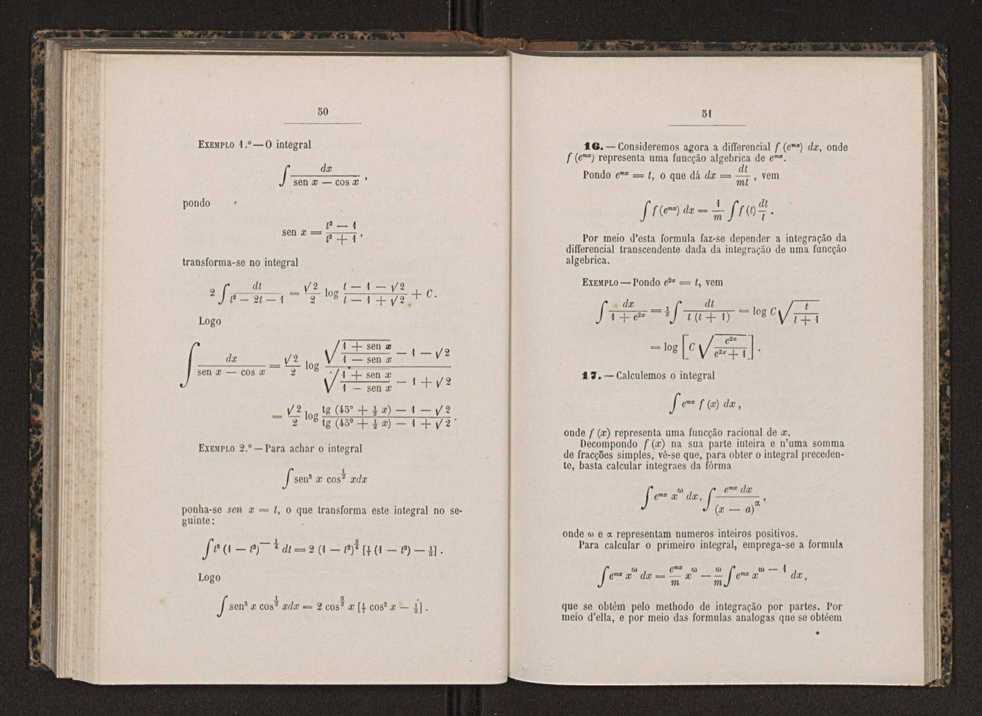 50
EXEMPLO 1.º — O integral
∫ dx / (sen x — cos x) ,
pondo
sen x = (t² — 1) / (t² + 1) ,
transforma-se no integral
2 ∫ dt / (t² — 2t — 1) = (√2 / 2) log (t — 1 — √2) / (t — 1 + √2) + C.
Logo
∫ dx / (sen x — cos x) = (√2 / 2) log (√((1 + sen x) / (1 — sen x)) — 1 — √2) / (√((1 + sen x) / (1 — sen x)) — 1 + √2)
= (√2 / 2) log (tg (45° + ½ x) — 1 — √2) / (tg (45° + ½ x) — 1 + √2) .
EXEMPLO 2.º — Para achar o integral
∫ sen³ x cos^½ xdx
ponha-se sen x = t, o que transforma este integral no se-
guinte:
Logo
51
16. — Consideremos agora a differencial f (eᵐˣ) dx, onde
f (eᵐˣ) representa uma funcção algebrica de eᵐˣ.
Pondo eᵐˣ = t, o que dá dx = dt / mt , vem
∫ f (eᵐˣ) dx = (1 / m) ∫ f (t) dt / t .
Por meio d'esta formula faz-se depender a integração da
differencial transcendente dada da integração de uma funcção
algebrica.
EXEMPLO — Pondo e²ˣ = t, vem
∫ dx / (1 + e²ˣ) = ½ ∫ dt / (t (t + 1)) = log C √(t / (t + 1))
= log [C √(e²ˣ / (e²ˣ + 1))] .
17. — Calculemos o integral
∫ eᵐˣ f (x) dx ,
onde f (x) representa uma funcção racional de x.
Decompondo f (x) na sua parte inteira e n'uma somma
de fracções simples, vê-se que, para obter o integral preceden-
te, basta calcular integraes da fórma
∫ eᵐˣ x^ω dx, ∫ eᵐˣ dx / (x — a)^α ,
onde ω e α representam numeros inteiros positivos.
Para calcular o primeiro integral, emprega-se a formula
∫ eᵐˣ x^ω dx = (eᵐˣ / m) x^ω — (ω / m) ∫ eᵐˣ x^(ω — 1) dx,
que se obtém pelo methodo de integração por partes. Por
meio d'ella, e por meio das formulas analogas que se obtéem
*